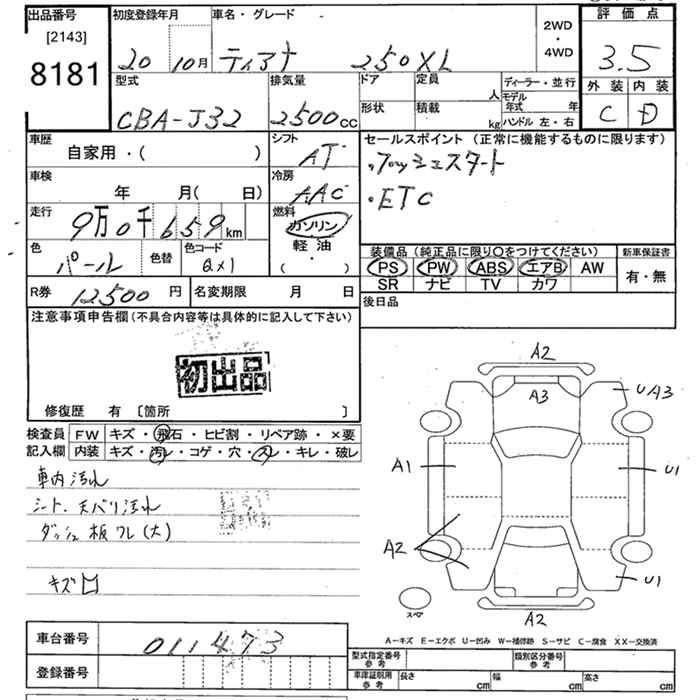 出品番号
[2143]
8181
初度登録年月
20 10月
車名・グレード
ティアナ 250XL
2WD
・
4WD
評価点
3.5
外装 内装
C D
型式
CBA-J32
排気量
2500cc
ドア
形状
定員 人
積載 kg
ディーラー・並行
モデル年式 年
ハンドル 左・右
車歴
自家用・( )
シフト
AT
車検
年 月( 日)
冷房
AAC
走行
9万0千659km
燃料
ガソリン
軽油
( ・ )
色
パール
色替
色コード
QX1
セールスポイント (正常に機能するものに限ります)
・プッシュスタート
・ETC
装備品 (純正品に限り○をつけてください)
PS PW ABS エアB AW
SR ナビ TV カワ
新車保証書
有・無
R券 12500円
名変期限 月 日
後日品
注意事項申告欄(不具合内容等は具体的に記入して下さい)
初出品
修復歴 有 [箇所 ]
検査員
記入欄
FW キズ・飛石・ヒビ割・リペア跡・×要
内装 キズ・汚レ・コゲ・穴・スレ・キレ・破レ
車内汚れ
シート、天バリ汚れ
ダッシュ板ワレ(大)
キズ凹
A2
A3
UA3
A1
U1
A2
U1
スペア
A2
A-キズ E-エクボ U-凹み W-補修跡 S-サビ C-腐食 XX-交換済
車台番号
011473
登録番号
型式指定番号
参考
類別区分番号
参考
車庫証明用
参考
長さ cm
幅 cm
高さ cm